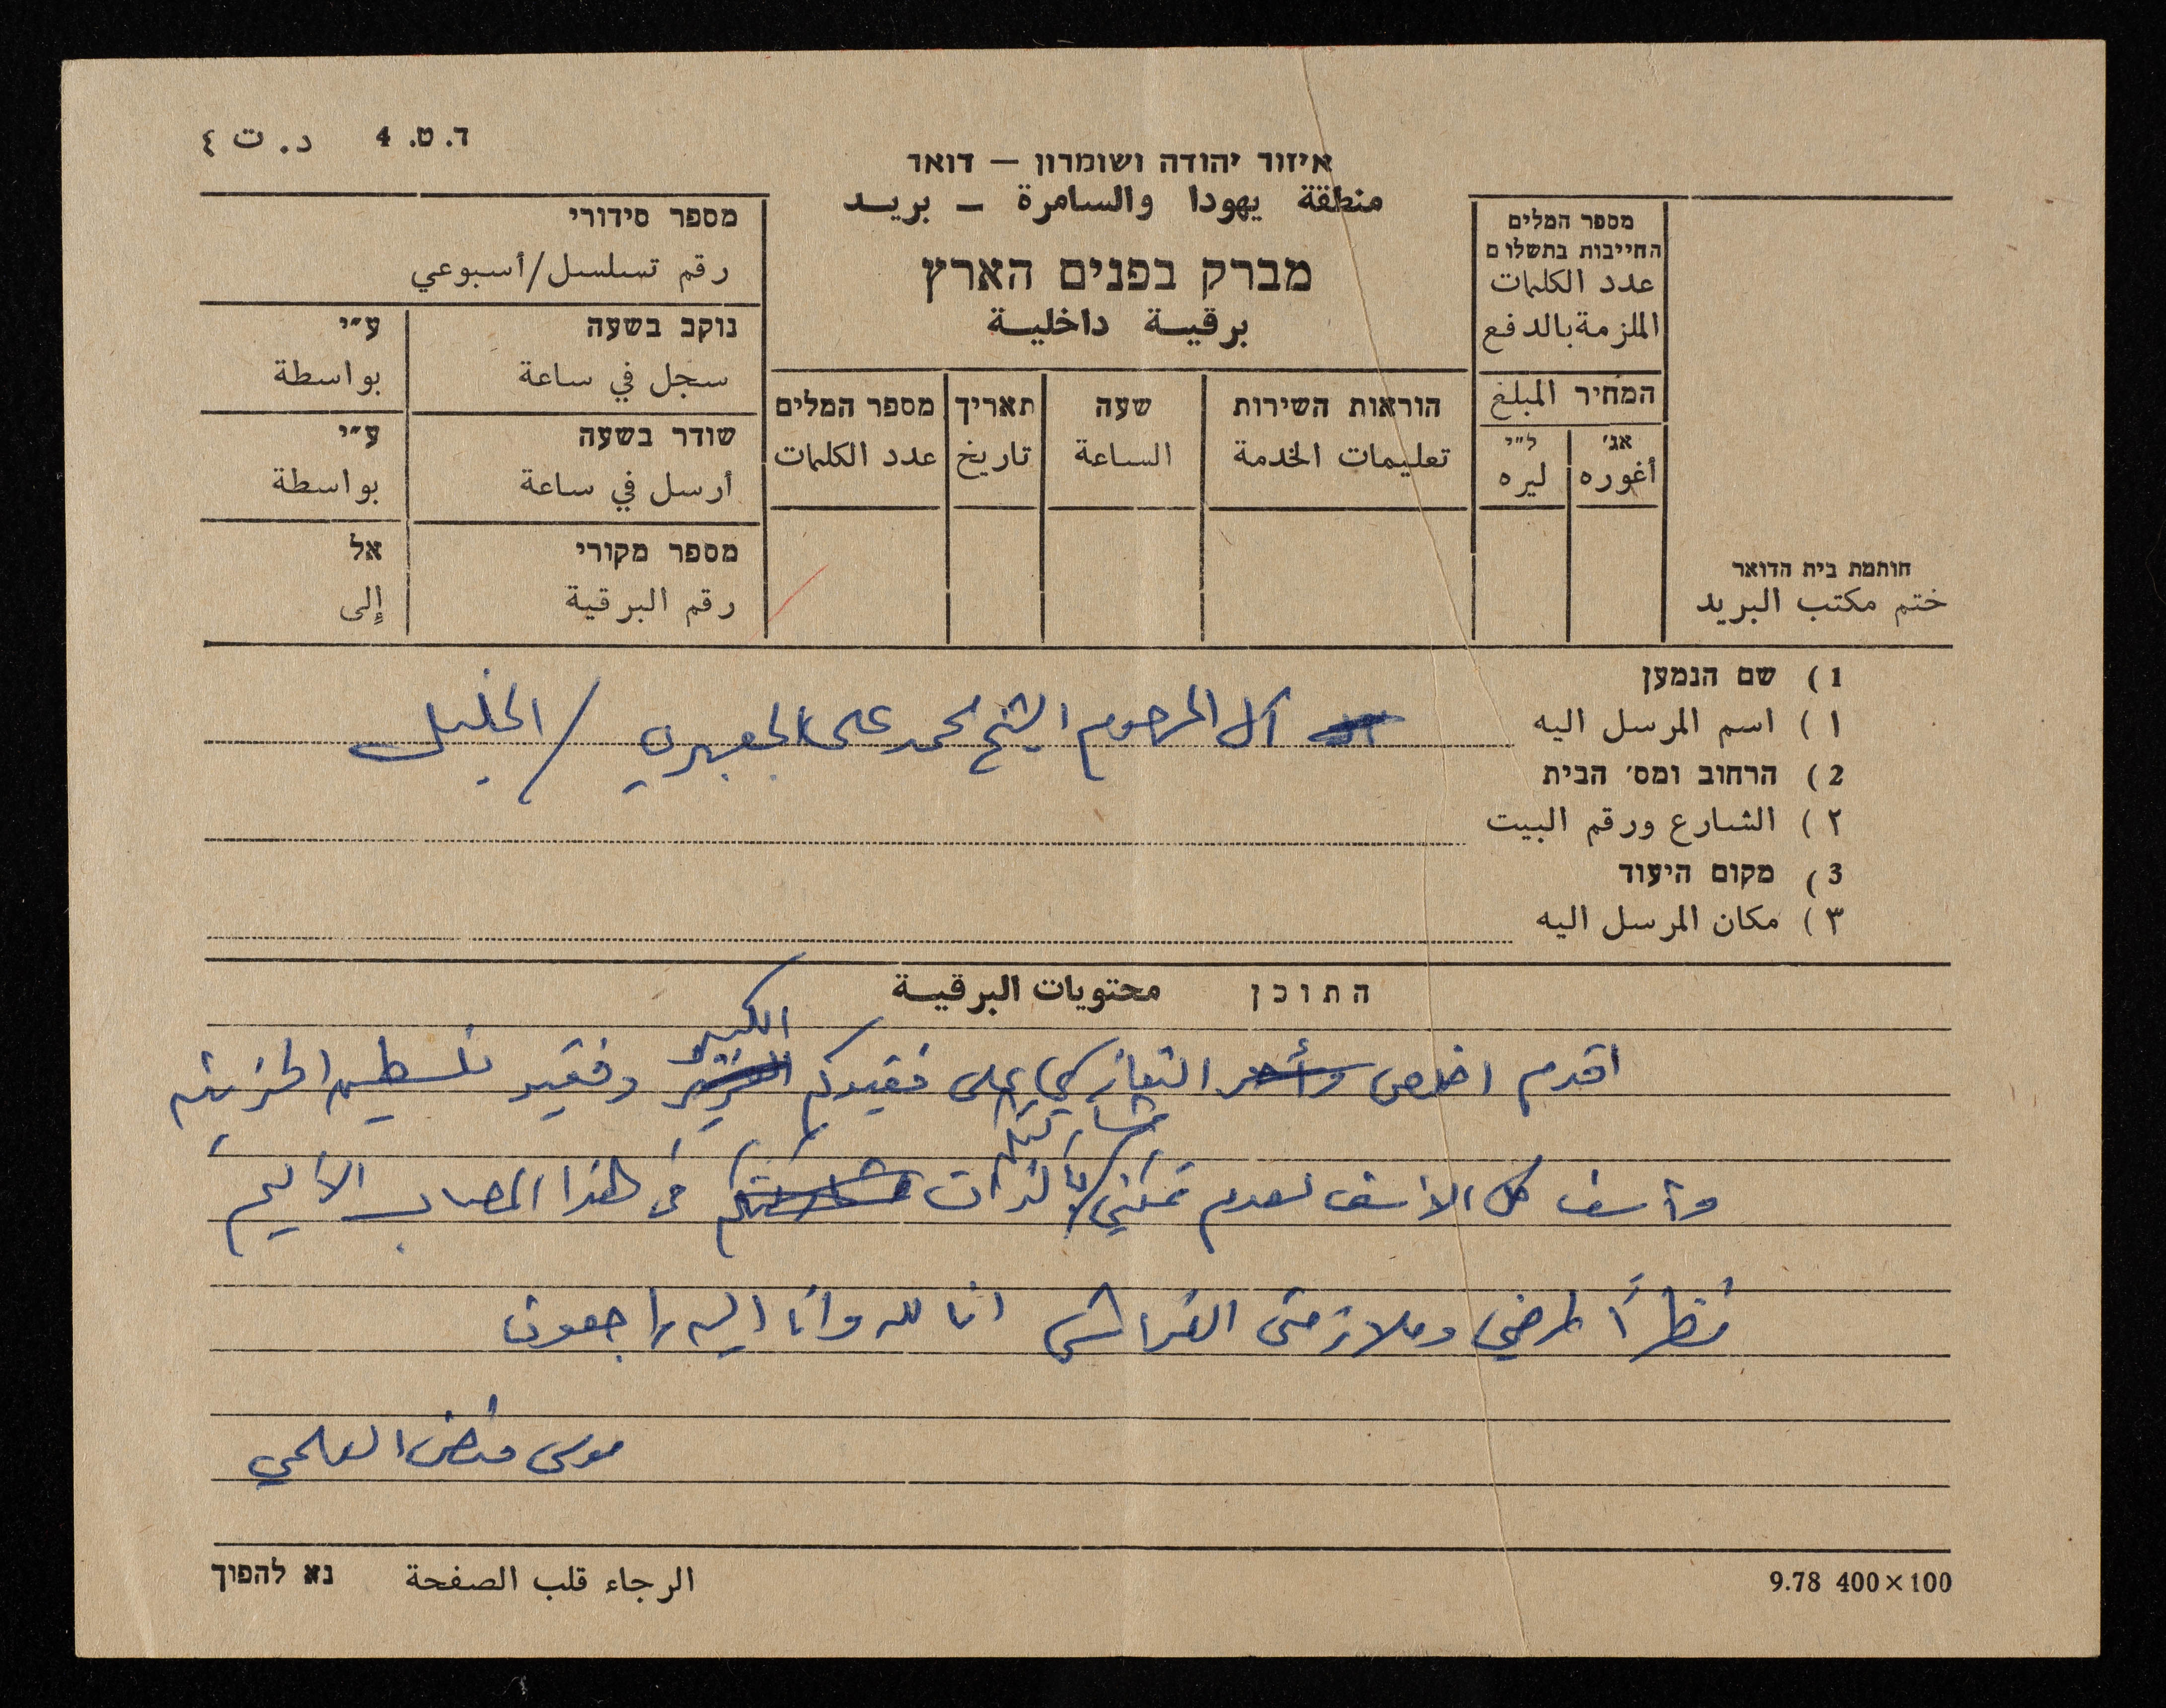 ד. ט. 4 د. ت ٤
איזור יהודה ושומרון – דואר
منطقة يهودا والسامرة – بريد
מברק בפנים הארץ
برقية داخلية
מספר המלים
החייבות בתשלום
عدد الكلمات
الملزمة بالدفع
המחיר المبلغ
אג׳ ל״י
أغوره ليره
חותמת בית הדואר
ختم مكتب البريد
הוראות השירות שעה תאריך מספר המלים
تعليمات الخدمة الساعة تاريخ عدد الكلمات
מספר סידורי
رقم تسلسل/أسبوعي
נוקב בשעה ע״י
سجل في ساعة بواسطة
שודר בשעה ע״י
أرسل في ساعة بواسطة
מספר מקורי אל
رقم البرقية إلى
1) שם הנמען
١) اسم المرسل اليه آل المرحوم الشيخ محمد علي الجعبري / الخليل
2) הרחוב ומס׳ הבית
٢) الشارع ورقم البيت
3) מקום היעוד
٣) مكان المرسل اليه
התוכן محتويات البرقية
الكبير
اقدم اخلص وأحر التعازي على فقيدكم وفقيد فلسطين الحزينة
مشاركتكم
وآسف كل الاسف لعدم تمكني بالذات مشاركتكم في هذا المصاب الأليم
نظرًا لمرضي وملازمتي الفراش انا لله وانا اليه راجعون
موسى فيضي العلمي
الرجاء قلب الصفحة נא להפוך
9.78 400×100